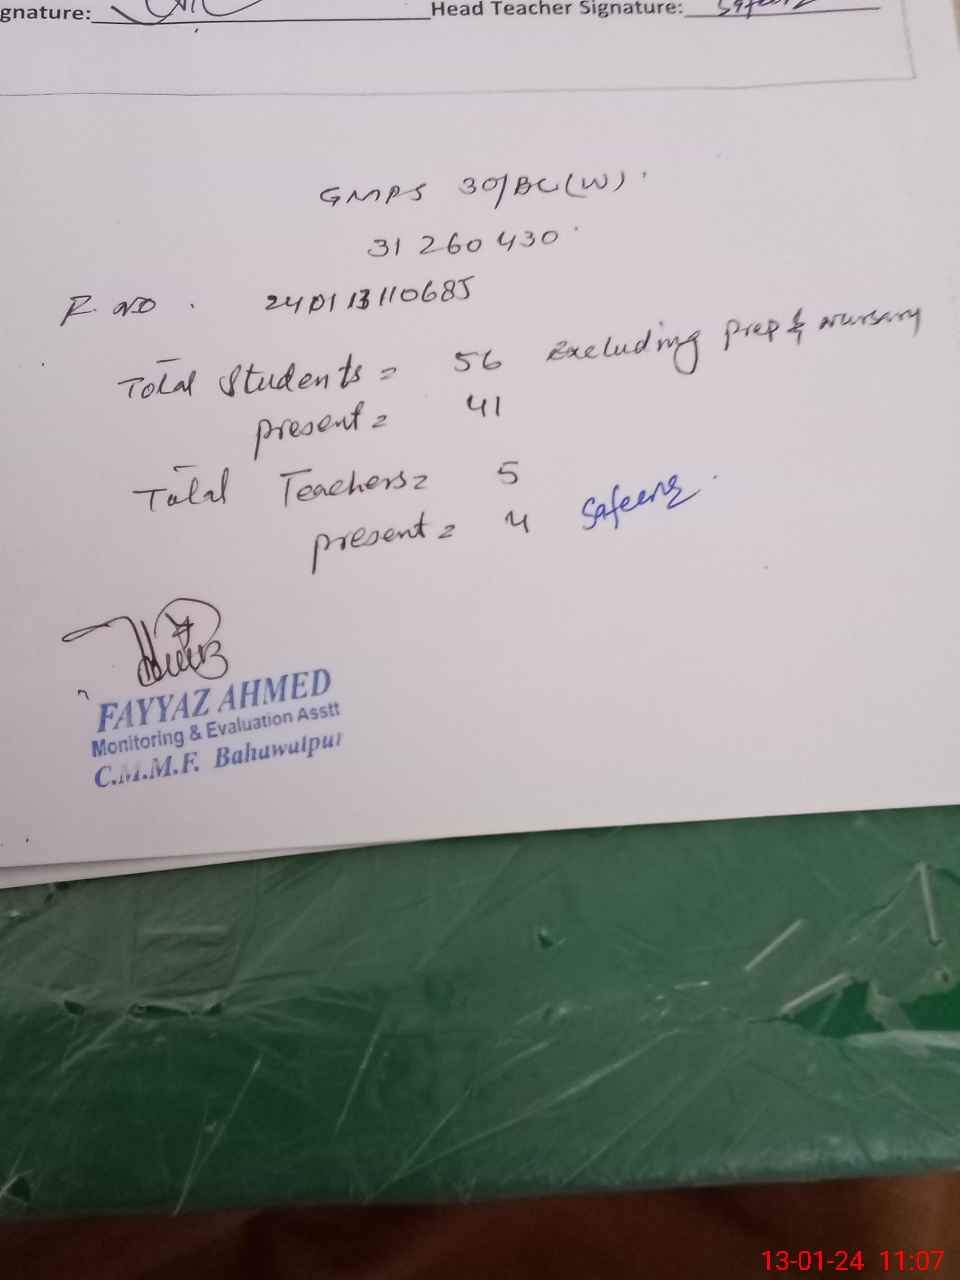 gnature: Head Teacher Signature: Safeena
GMPS 30/BC(W).
31260430
R. NO. 240113110685
Total Students = 56 Excluding prep & nursary
present = 41
Total Teachers = 5
present = 4 Safeena
FAYYAZ AHMED
Monitoring & Evaluation Asstt
C.M.M.F. Bahawalpur
13-01-24 11:07